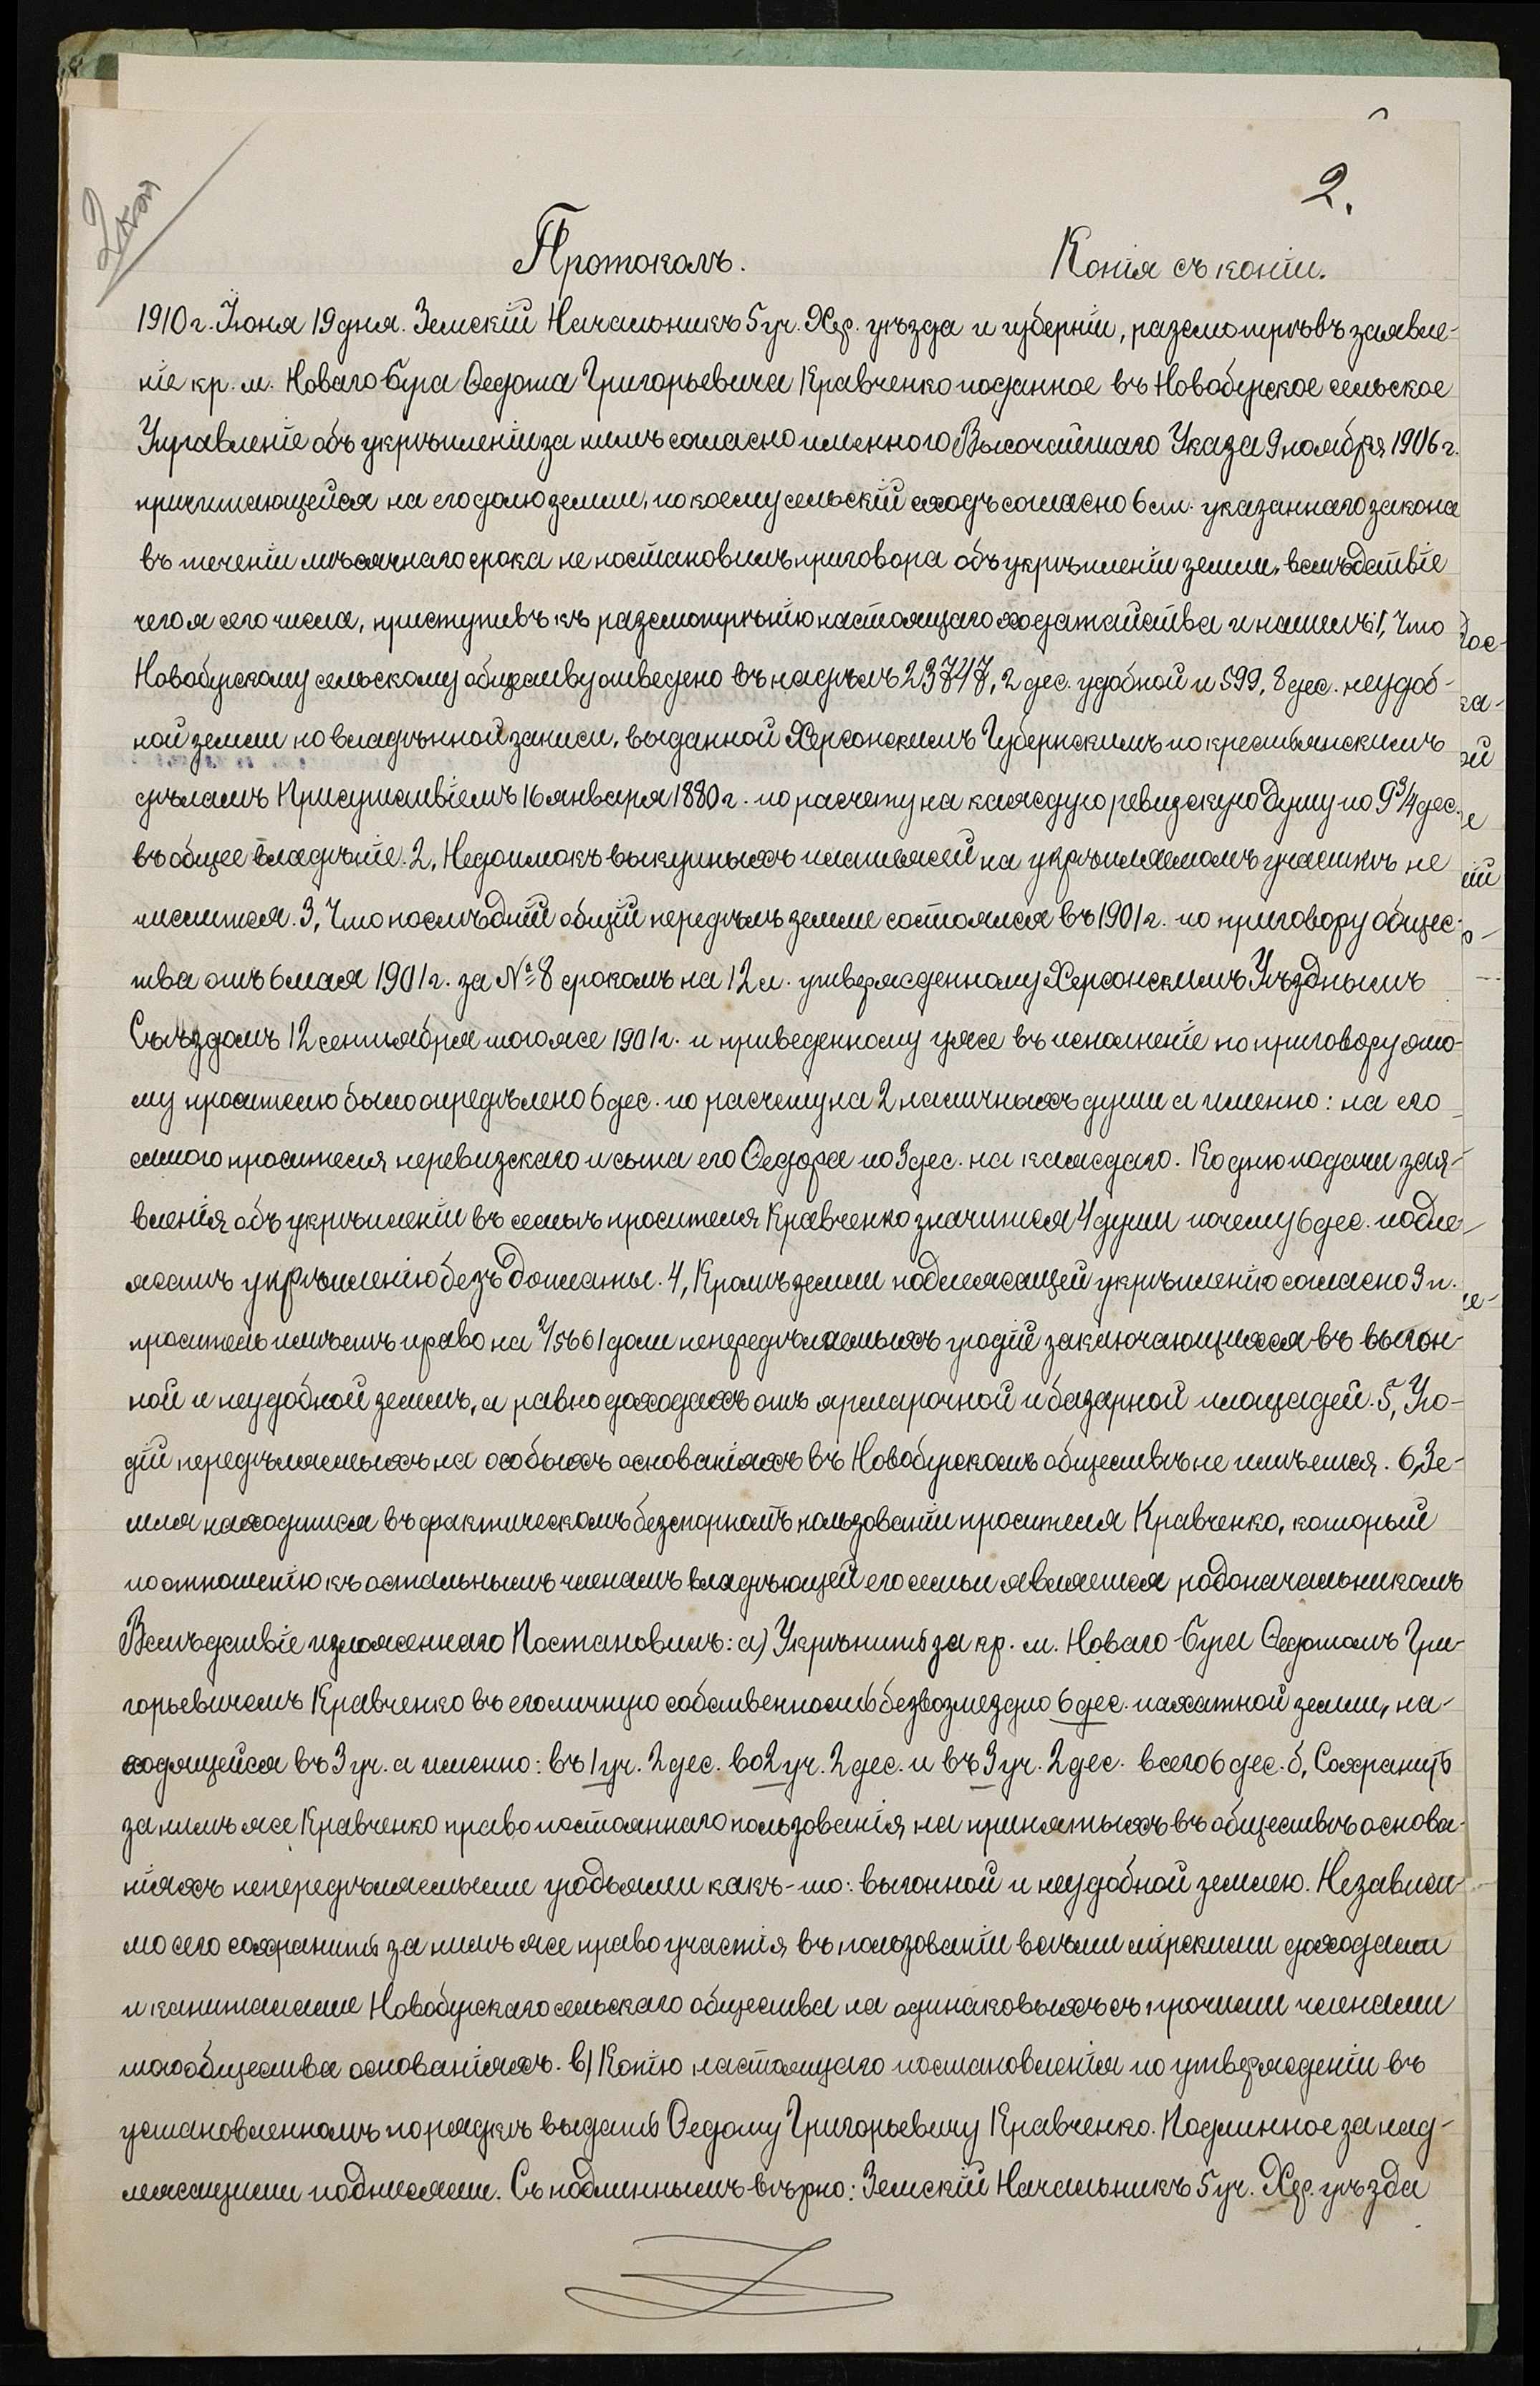 2.
Протоколъ.
Копія съ копіи.
1910 г. Іюня 19 дня. Земскій Начальникъ 5 уч. Хер. уѣзда и губерніи, разсмотрѣвъ заявле-
ніе кр. м. Новаго Буга Ѳедота Григорьевича Кравченко поданное въ Новобугское сельское
Управленіе объ укрѣпленіи за нимъ согласно именного Высочайшаго Указа 9 ноября 1906 г.
причитающейся на его долю земли, по коему сельскій сходъ согласно 6 ст. указаннаго закона
въ теченіи мѣсячнаго срока не постановилъ приговора объ укрѣпленіи земли, вслѣдствіе
чего я сего числа, приступивъ къ разсмотрѣнію настоящаго ходатайства и нашелъ: 1, Что
Новобугскому сельскому обществу отведено въ надѣлъ 23747,2 дес. удобной и 599,8 дес. неудоб-
ной земли по владѣнной записи, выданной Херсонскимъ Губернскимъ по крестьянскимъ
дѣламъ Присутствіемъ 16 января 1880 г. по расчету на каждую ревизскую душу по 9 3/4 дес.
въ общее владѣніе. 2, Недоимокъ выкупныхъ платежей на укрѣпляемомъ участкѣ не
числится. 3, Что послѣдній общій передѣлъ земли состоялся въ 1901 г. по приговору общес-
тва отъ 6 мая 1901 г. за № 8 срокомъ на 12 л. утвержденному Херсонскимъ Уѣзднымъ
Съѣздомъ 12 сентября того же 1901 г. и приведенному уже въ исполненіе по приговору это-
му просителю было опредѣлено 6 дес. по расчету на 2 наличныхъ души а именно: на его
самого просителя неревизскаго и сына его Ѳедора по 3 дес. на каждаго. Ко дню подачи зая-
вленія объ укрѣпленіи въ семьѣ просителя Кравченко значится 4 души почему 6 дес. подле-
жатъ укрѣпленію безъ доплаты. 4, Кромѣ земли подлежащей укрѣпленію согласно 3 п.
проситель имѣетъ право на 2/5661 доли непередѣляемыхъ угодій заключающихся въ выгон-
ной и неудобной землѣ, а равно доходахъ отъ ярмарочной и базарной площадей. 5, Уго-
дій передѣляемыхъ на особыхъ основаніяхъ въ Новобугскомъ обществѣ не имѣется. 6, Зе-
мля находится въ фактическомъ безспорномъ пользованіи просителя Кравченко, который
по отношенію къ остальнымъ членамъ владѣющей его семьи является родоначальникомъ
Вслѣдствіе изложеннаго Постановилъ: а) Укрѣпить за кр. м. Новаго-Буга Ѳедотомъ Гри-
горьевичемъ Кравченко въ его личную собственность безвозмездно 6 дес. пахатной земли, на-
ходящейся въ 3 уч. а именно: въ 1 уч. 2 дес. во 2 уч. 2 дес. и въ 3 уч. 2 дес. всего 6 дес. б, Сохранить
за нимъ же Кравченко право постояннаго пользованія, на принятыхъ въ обществѣ основа-
ніяхъ непередѣляемыми угодьями какъ-то: выгонной и неудобной землею. Независи-
мо сего сохранить за нимъ же право участія въ пользованіи всѣми мірскими доходами
и капиталами Новобугскаго сельскаго общества на одинаковыхъ съ прочими членами
того общества основаніяхъ. в) Копію настоящаго постановленія по утвержденіи въ
установленномъ порядкѣ выдать Ѳедоту Григорьевичу Кравченко. Подлинное за над-
лежащими подписями. Съ подлиннымъ вѣрно: Земскій Начальникъ 5 уч. Хер. уѣзда